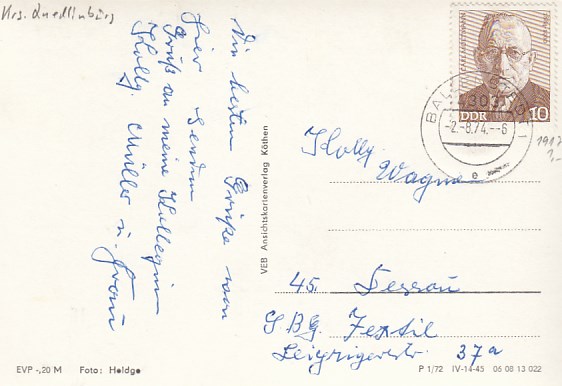 Krs. Quedlinburg
Die besten Grüße von
hier senden
Grüß an meine Kollegin
Kolly. Müller u. Frau
VEB Ansichtskartenverlag Köthen
DDR 10
4303
-2.-8.74.--6
e
1917
Kolly.
Wagner
45. Dessau
GBg Textil
Leipzigerstr. 37a
EVP -,20 M Foto: Heldge
P 1/72 IV-14-45 06 08 13 022